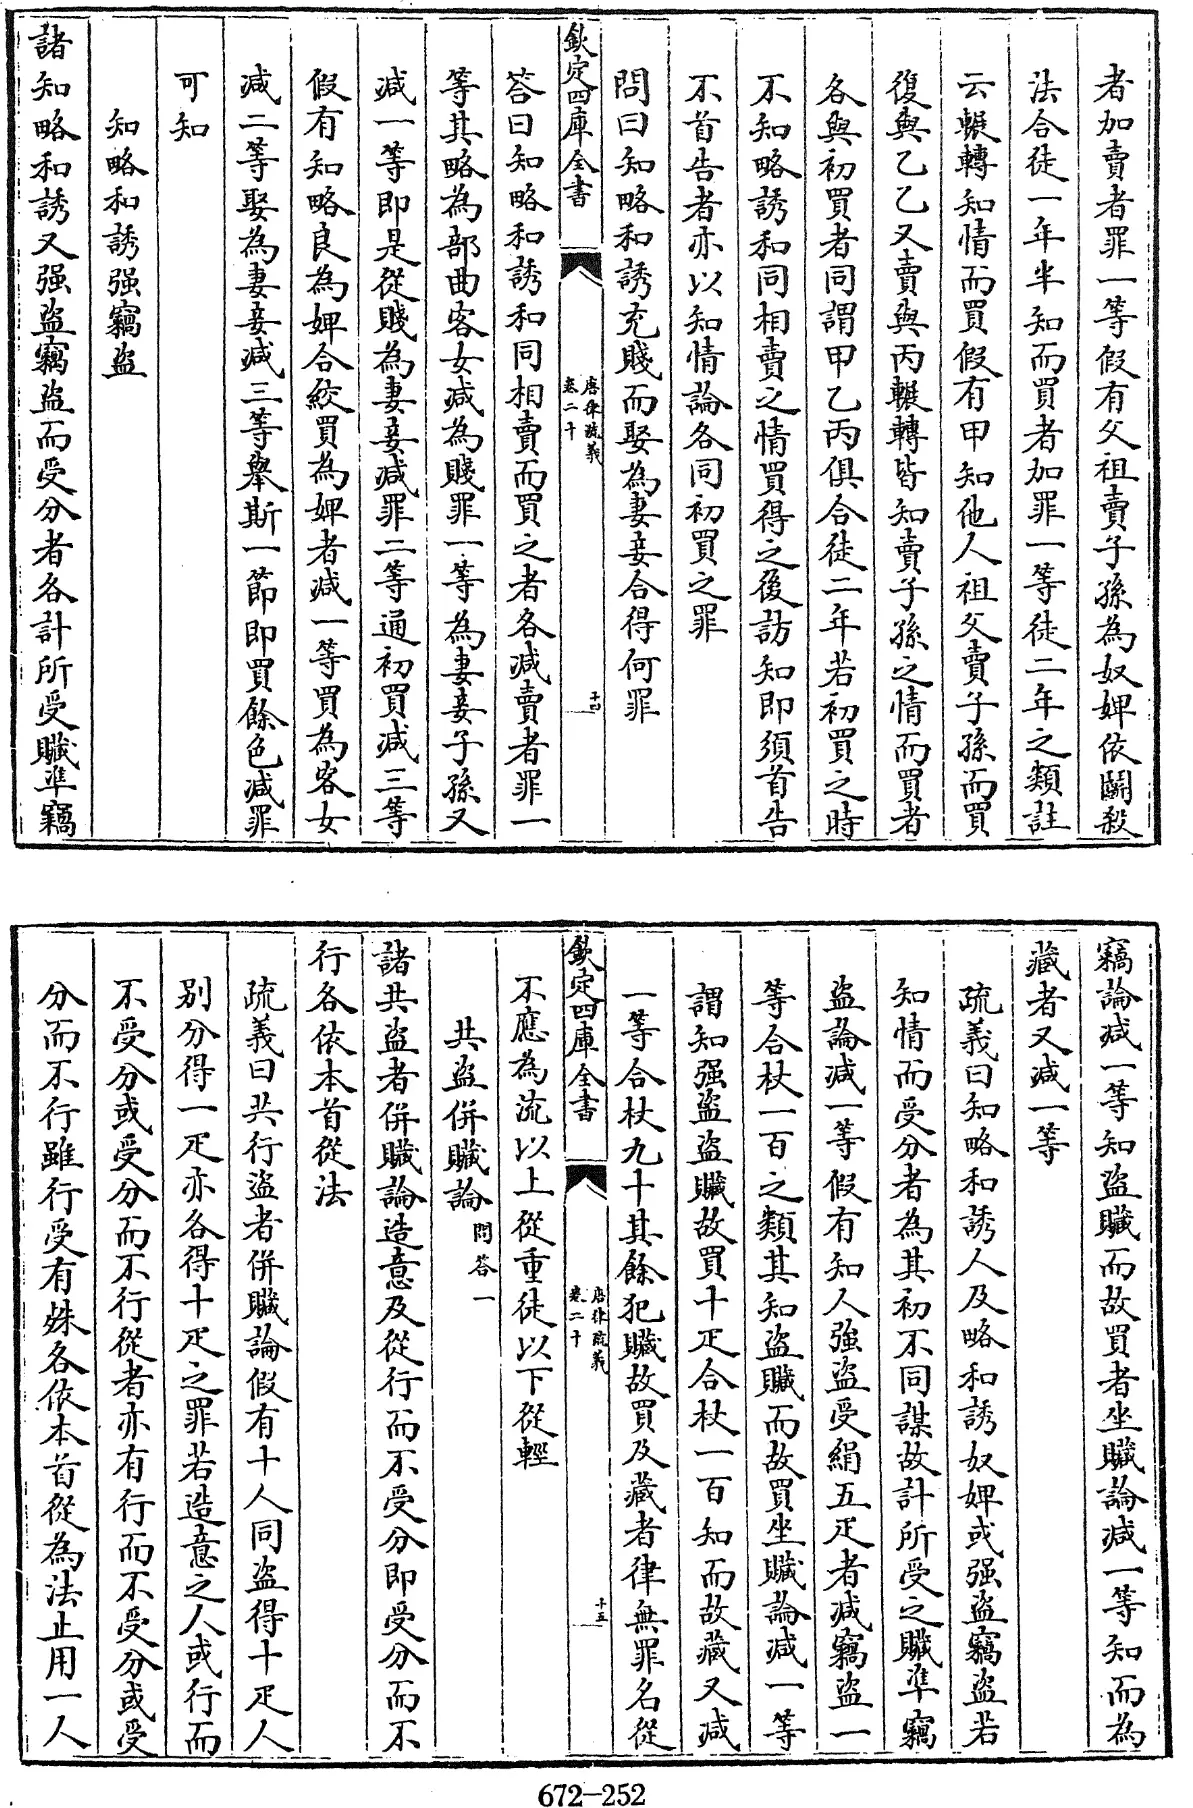 者加賣者罪一等假有父祖賣子孫為奴婢依鬬殺
法合徒一年半知而買者加罪一等徒二年之類註
云輾轉知情而買假有甲知他人祖父賣子孫而買
復與乙乙又賣與丙輾轉皆知賣子孫之情而買者
各與初買者同謂甲乙丙俱合徒二年若初買之時
不知略誘和同相賣之情買得之後訪知即須首告
不首告者亦以知情論各同初買之罪
問曰知略和誘充賤而娶為妻妾合得何罪
欽定四庫全書
唐律疏義
卷二十
十四
答曰知略和誘和同相賣而買之者各減賣者罪一
等其略為部曲客女減為賤罪一等為妻妾子孫又
減一等即是從賤為妻妾減罪二等通初買減三等
假有知略良為婢合絞買為婢者減一等買為客女
減二等娶為妻妾減三等舉斯一節即買餘色減罪
可知
知略和誘强竊盜
諸知略和誘又强盜竊盜而受分者各計所受贓準竊
竊論減一等知盜贓而故買者坐贓論減一等知而為
藏者又減一等
疏義曰知略和誘人及略和誘奴婢或强盜竊盜若
知情而受分者為其初不同謀故計所受之贓準竊
盜論減一等假有知人強盜受絹五疋者減竊盜一
等合杖一百之類其知盜贓而故買坐贓論減一等
謂知强盜盜贓故買十疋合杖一百知而故藏又減
一等合杖九十其餘犯贓故買及藏者律無罪名從
欽定四庫全書
唐律疏義
卷二十
十五
不應為流以上從重徒以下從輕
共盜併贓論問答一
諸共盜者併贓論造意及從行而不受分即受分而不
行各依本首從法
疏義曰共行盜者併贓論假有十人同盜得十疋人
別分得一疋亦各得十疋之罪若造意之人或行而
不受分或受分而不行從者亦有行而不受分或受
分而不行雖行受有殊各依本首從為法止用一人
672-252